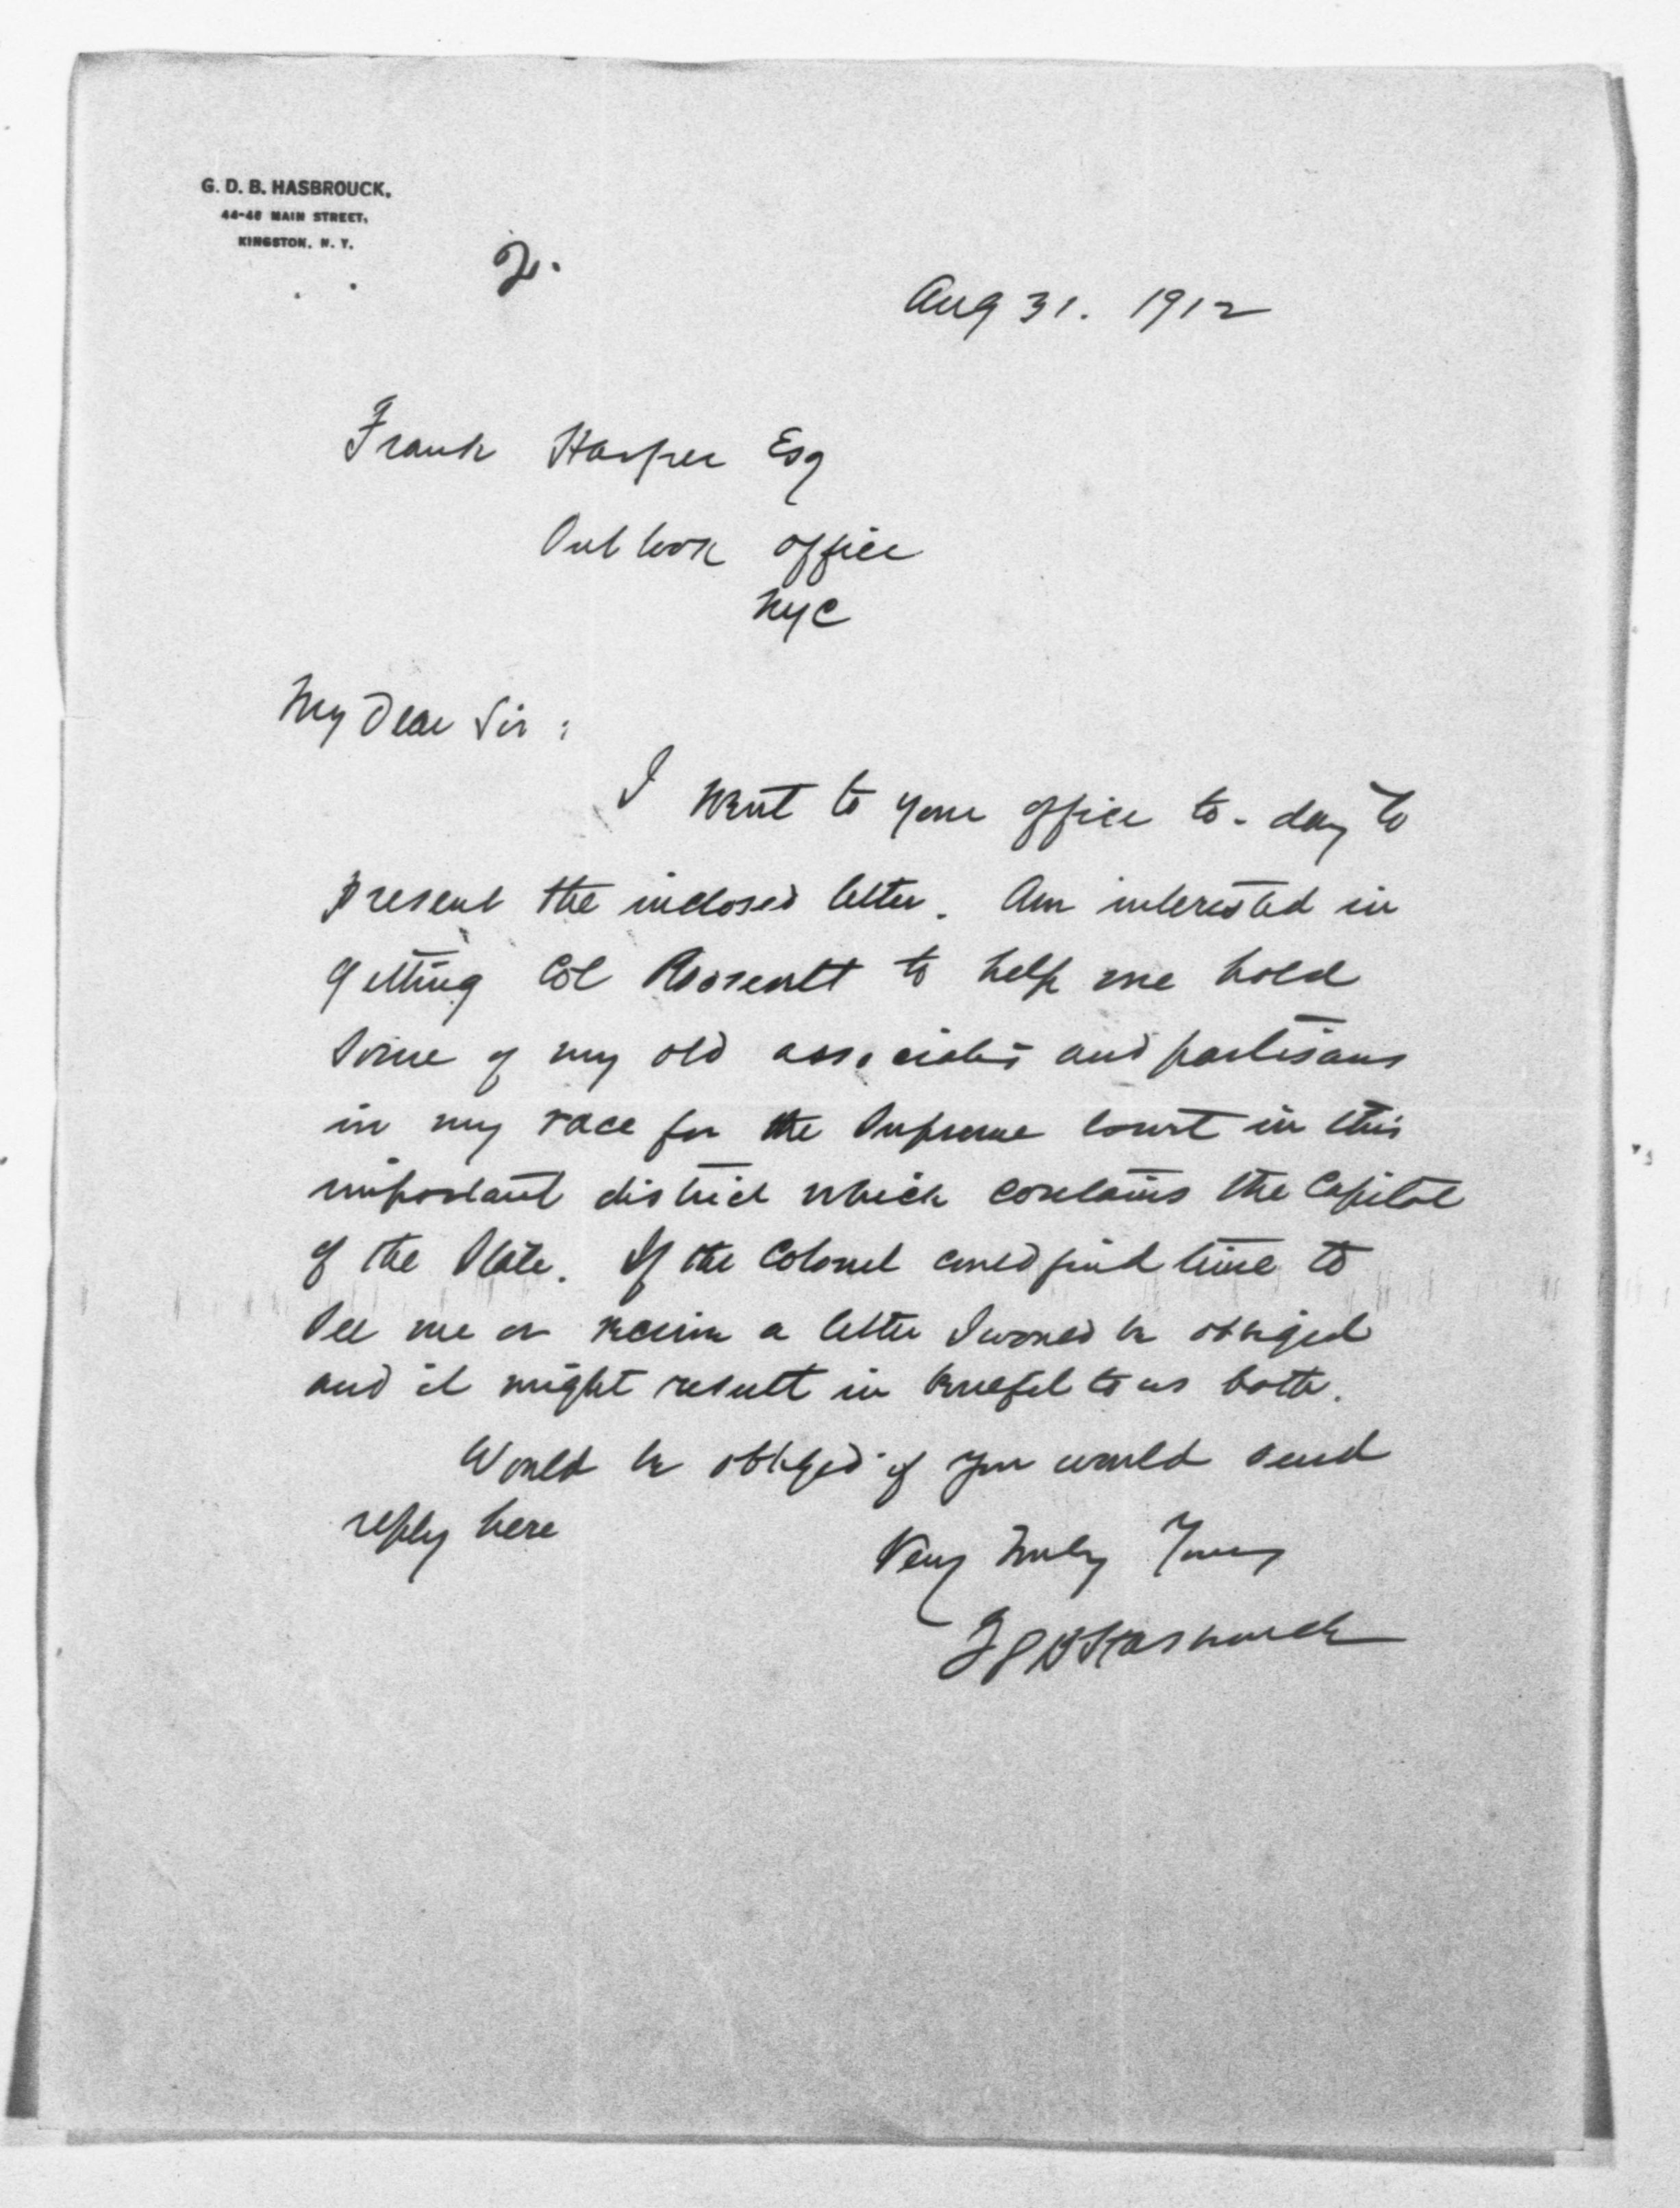 G. D. B. HASBROUCK,
44-46 MAIN STREET,
KINGSTON, N. Y.
Aug 31. 1912
Frank Harper Esq
Outlook office
NYC
My Dear Sir :
I went to your office to-day to
present the inclosed letter. Am interested in
getting Col Roosevelt to help me hold
some of my old associates and partisans
in my race for the Supreme Court in this
important district which contains the Capitol
of the State. If the Colonel could find time to
see me or receive a letter I would be obliged
and it might result in benefit to us both.
Would be obliged if you would send
reply here
Very Truly Yours
G D B Hasbrouck